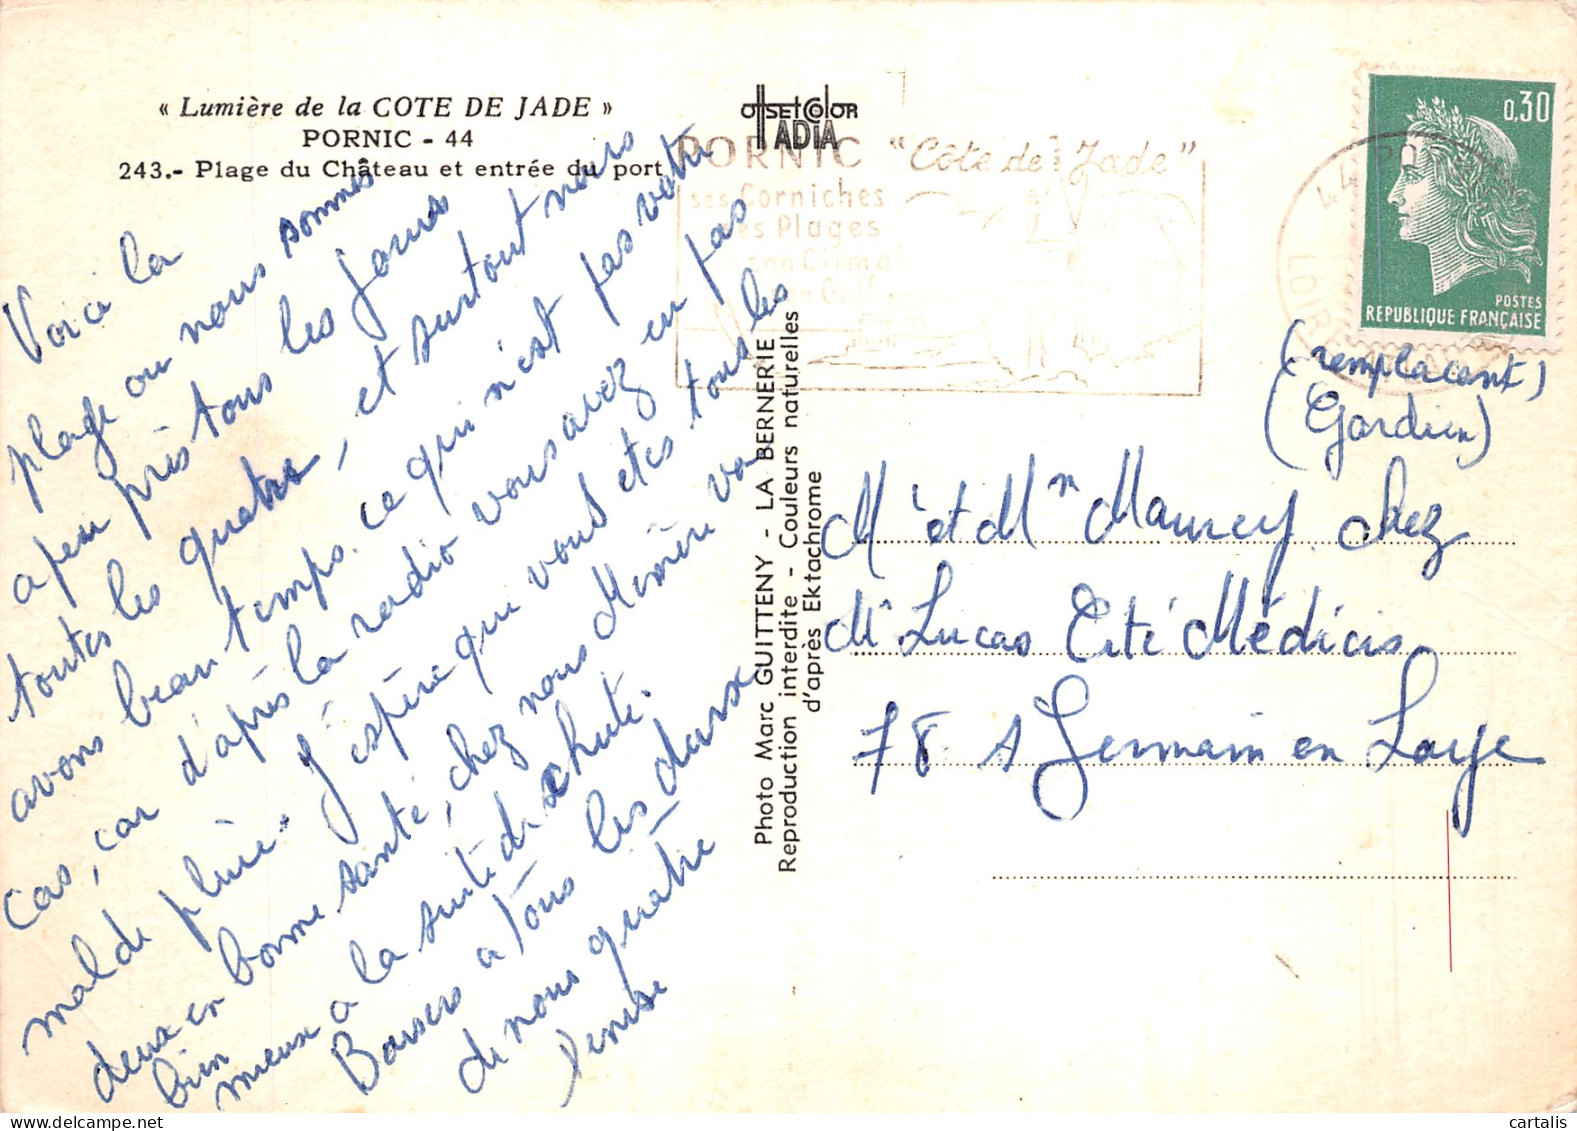 « Lumière de la COTE DE JADE »
PORNIC - 44
243.- Plage du Château et entrée du port
Voici la
plage ou nous sommes
a peu près tous les jours
toutes les quatre, et surtout nous
avons beau temps. ce qui n'est pas votre
cas, car d'après la radio vous avez eu pas
mal de pluie. J'espère que vous etes tous les
deux en bonne santé, chez nous Mémère va
bien
mieux a la suite de chute.
Baisers a tous les deux
de nous quatre
Denise
OffsetColor
IADIA
Photo Marc GUITTENY - LA BERNERIE
Reproduction interdite - Couleurs naturelles
d'après Ektachrome
PORNIC "Côte de Jade"
ses Corniches
ses Plages
son Climat
son Golf
44 PO
LOIRE
0,30
POSTES
REPUBLIQUE FRANÇAISE
(remplacant)
(Gardien)
Mr et Mm Maurey chez
Mr Lucas Cité Médicis
78 St Germain en Laye
cartalis